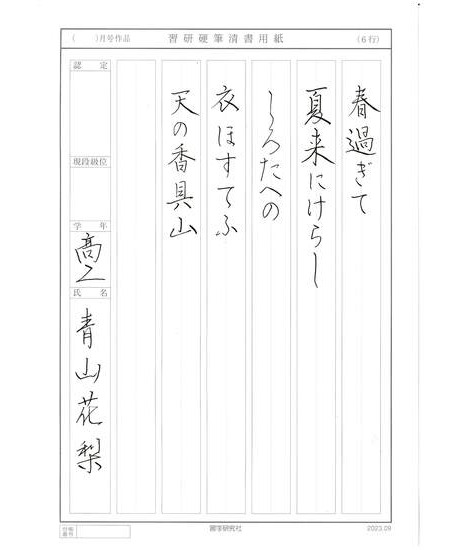 （　）月号作品
習研硬筆清書用紙
（6行）
春過ぎて
夏来にけらし
しろたへの
衣ほすてふ
天の香具山
認定
現段級位
学年
高二
氏名
青山花梨
習字研究社
2023.09